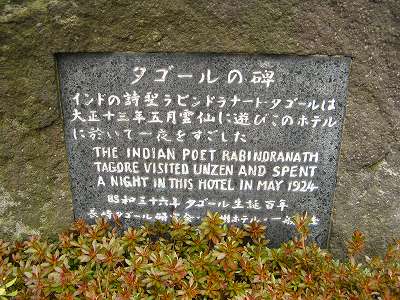 タゴールの碑
インドの詩聖ラビンドラナート・タゴールは
大正十三年五月雲仙に遊びこのホテル
に於いて一夜をすごした
THE INDIAN POET RABINDRANATH
TAGORE VISITED UNZEN AND SPENT
A NIGHT IN THIS HOTEL IN MAY 1924
昭和三十六年 タゴール生誕百年
長崎タゴール研究会 州ホテル